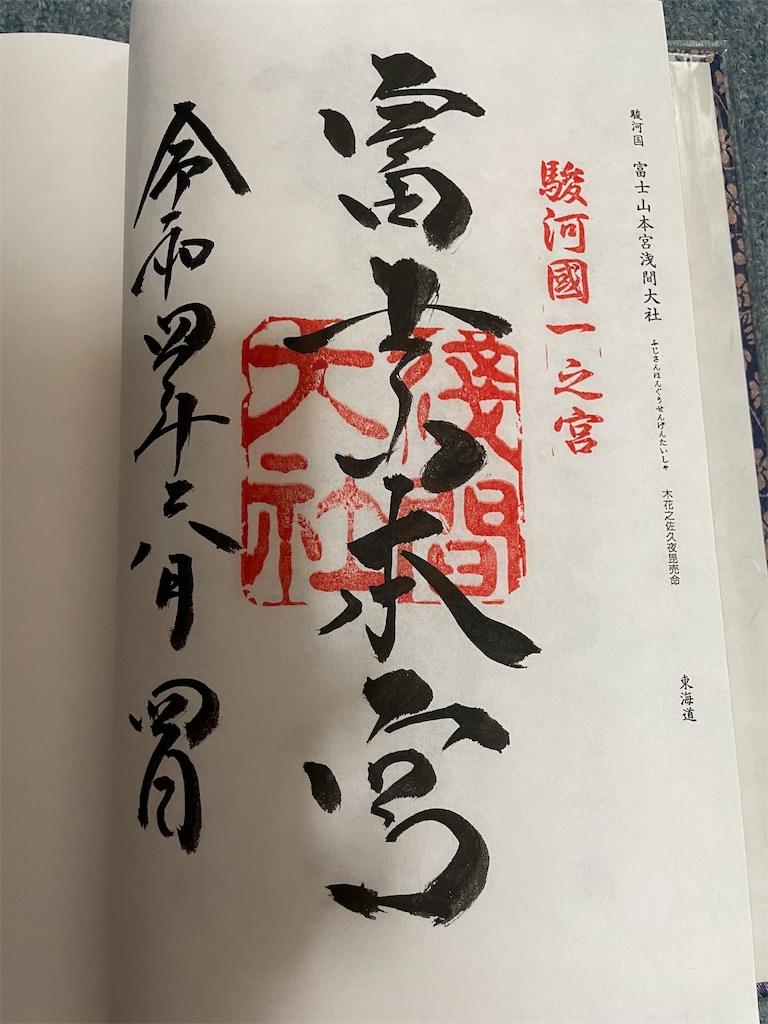 駿河国 富士山本宮浅間大社 ふじさんほんぐうせんげんたいしゃ 木花之佐久夜毘売命 東海道
駿河國一之宮
富士山本宮
淺間大社
令和四年六月四日